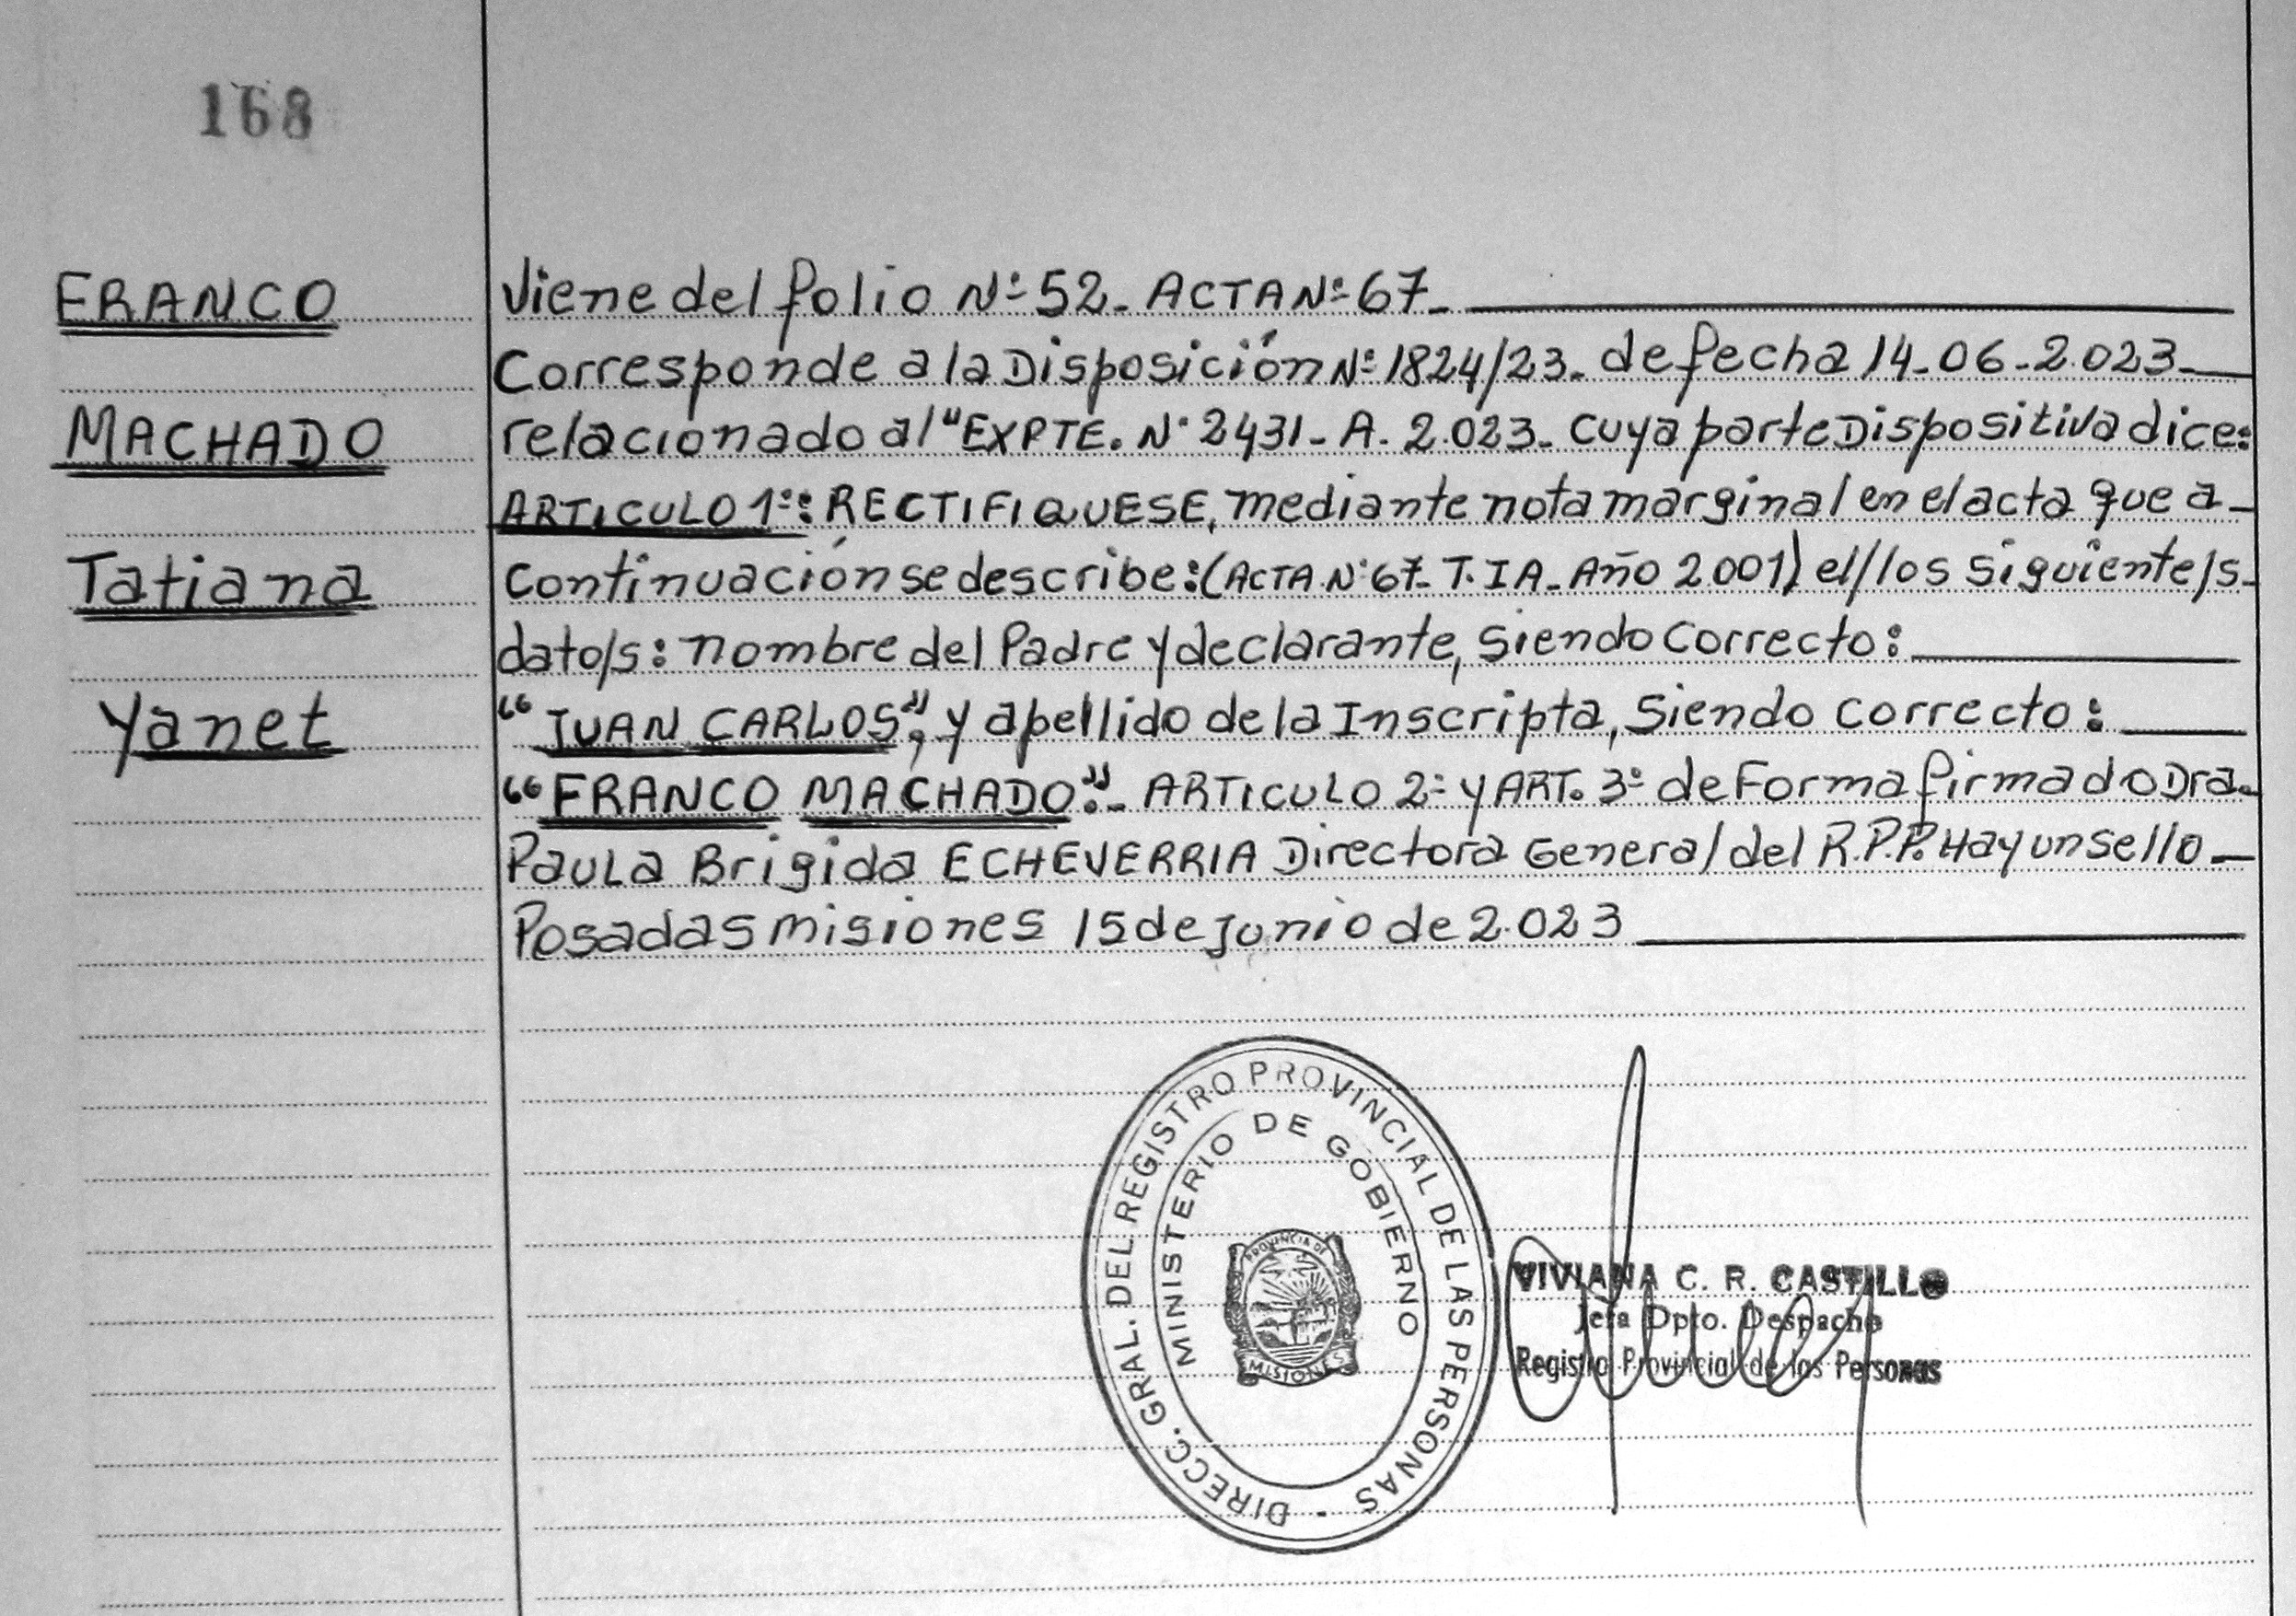 168
FRANCO
MACHADO
Tatiana
Yanet
Viene del folio Nº 52_ ACTA Nº 67_
Corresponde a la Disposición Nº 1824/23_ de fecha 14_06_2.023_
relacionado al "EXPTE. Nº 2431_ A. 2.023_ Cuya parte Dispositiva dice:
ARTICULO 1º: RECTIFIQUESE, mediante nota marginal en el acta que a_
Continuación se describe: (ACTA Nº 67_ T. IA_ Año 2.001) el/los siguiente/s_
dato/s: nombre del Padre y declarante, Siendo Correcto:
"JUAN CARLOS", y apellido de la Inscripta, Siendo Correcto:
"FRANCO MACHADO"._ ARTICULO 2º y ART. 3º de Forma firmado Dra.
Paula Brigida ECHEVERRIA Directora General del R.P.P. Hay un Sello_
Posadas misiones 15 de Junio de 2.023
DIRECC. GRAL. DEL REGISTRO PROVINCIAL DE LAS PERSONAS -
MINISTERIO DE GOBIERNO
PROVINCIA DE
MISIONES
VIVIANA C. R. CASTILLO
Jefa Dpto. Despacho
Registro Provincial de las Personas